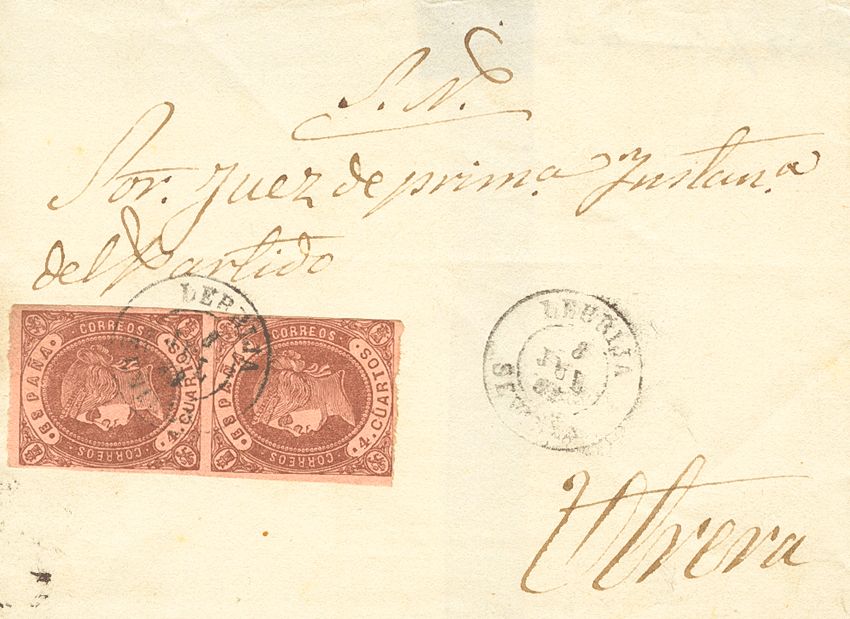 S. N.
Sor. Juez de prim.a Instan.a
del Partido
LEBRIJA
CORREOS
ESPAÑA
4 CUARTOS
CORREOS
CORREOS
ESPAÑA
4 CUARTOS
CORREOS
LEBRIJA
8
JUL
SEVILLA
Utrera